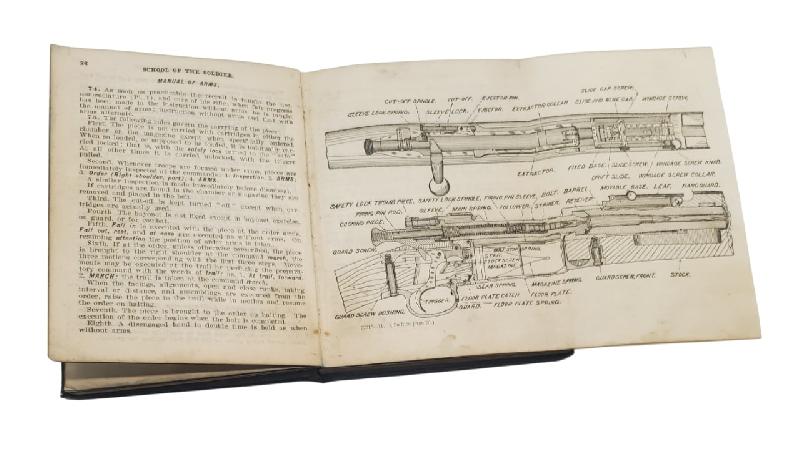 SCHOOL OF THE SOLDIER.
MANUAL OF ARMS.
74. As soon as practicable the recruit is taught the use,
nomenclature (Pl. I), and care of his rifle; when fair progress
has been made in the instruction without arms, he is taught
the manual of arms; instruction without arms and that with
arms alternate.
75. The following rules govern the carrying of the piece:
First. The piece is not carried with cartridges in either the
chamber or the magazine except when specifically ordered.
When so loaded, or supposed to be loaded, it is habitually carried
locked; that is, with the safety lock turned to the "safe."
At all other times it is carried unlocked, with the trigger
pulled.
Second. Whenever troops are formed under arms, pieces are
immediately inspected at the commands: 1. Inspection, 2. ARMS,
3. Order (Right shoulder, port), 4. ARMS.
A similar inspection is made immediately before dismissal.
If cartridges are found in the chamber or magazine they are
removed and placed in the belt.
Third. The cut-off is kept turned "off" except when
cartridges are actually used.
Fourth. The bayonet is not fixed except in bayonet exercise,
on guard, or for combat.
Fifth. Fall in is executed with the piece at the order arms.
Fall out, rest, and at ease are executed as without arms. On
resuming attention the position of order arms is taken.
Sixth. If at the order, unless otherwise prescribed, the piece
is brought to the right shoulder at the command march, the
three motions corresponding with the first three steps.
When the facings, alignments, open and close ranks, taking
interval or distance, and assemblings are executed from the
order, raise the piece to the trail while in motion and resume
the order on halting.
Seventh. The piece is brought to the order on halting. The
execution of the order begins when the halt is completed.
Eighth. A disengaged hand in double time is held as when
without arms.
SLIDE CAP SCREW.
CUT-OFF SPINDLE. CUT-OFF. EJECTOR PIN.
SLEEVE LOCK SPRING. SLEEVE LOCK. EJECTOR. EXTRACTOR COLLAR. WINDAGE SCREW.
EXTRACTOR. FIXED BASE. SLIDE SCREW. WINDAGE SCREW KNOB.
DRIFT SLIDE. WINDAGE SCREW COLLAR.
SAFETY LOCK THUMB PIECE. SAFETY LOCK SPINDLE. FIRING PIN SLEEVE. BOLT. BARREL. MOVABLE BASE. LEAF. HANDGUARD.
FIRING PIN ROD. SLEEVE. MAIN SPRING. FOLLOWER. STRIKER. RECEIVER.
COCKING PIECE.
GUARD SCREW
SEAR SPRING. MAGAZINE SPRING. GUARD SCREW, FRONT. STOCK.
TRIGGER. FLOOR PLATE CATCH FLOOR PLATE.
GUARD SCREW BUSHING. GUARD. FLOOR PLATE SPRING.